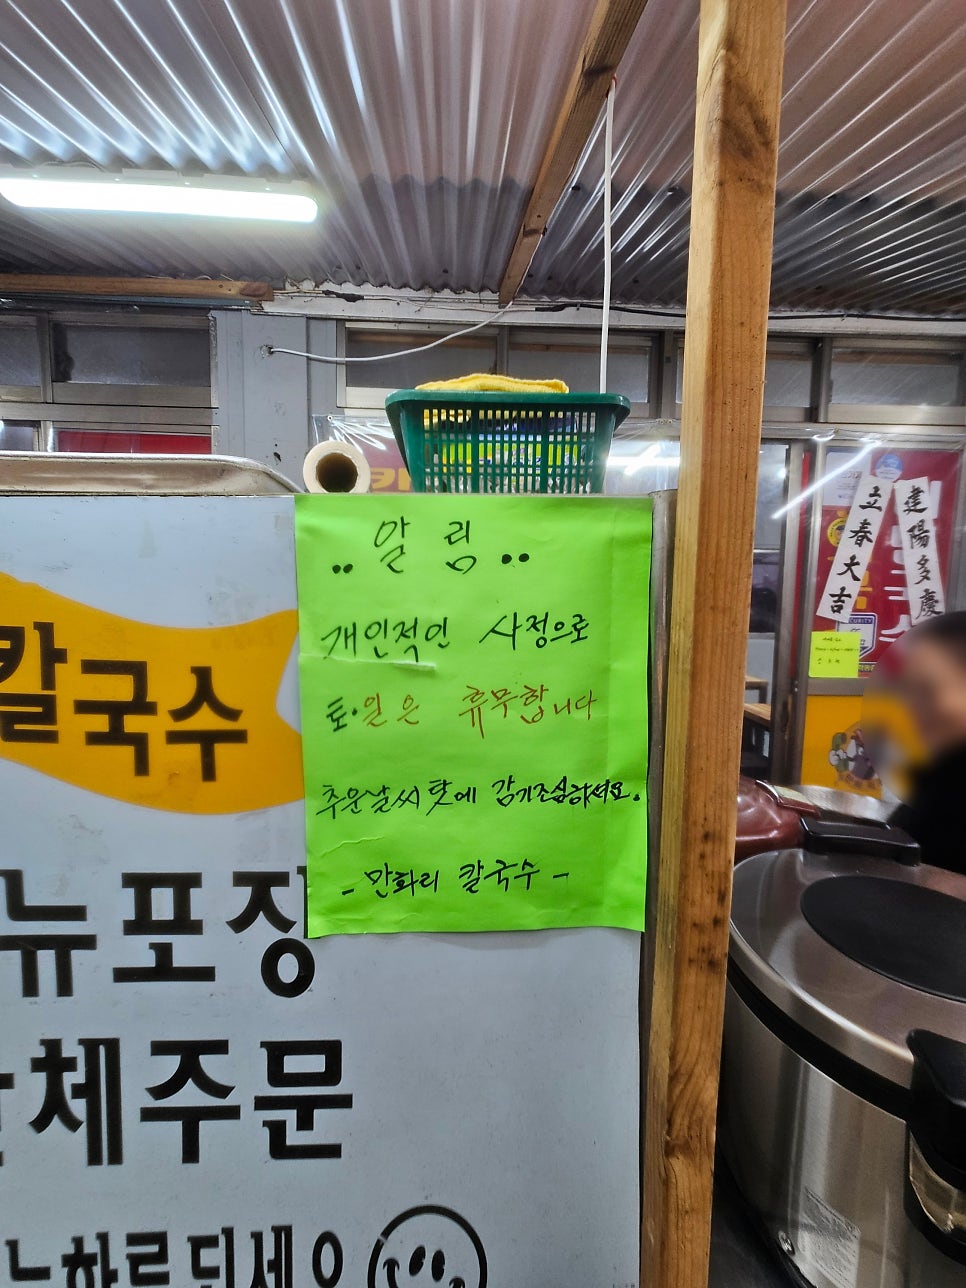 ‥알 림‥
개인적인 사정으로
토·일은 휴무합니다
추운날씨 탓에 감기조심하셔요.
- 만화리 칼국수 -
칼국수
뉴포장
체주문
하루되세요
立春大吉
建陽多慶